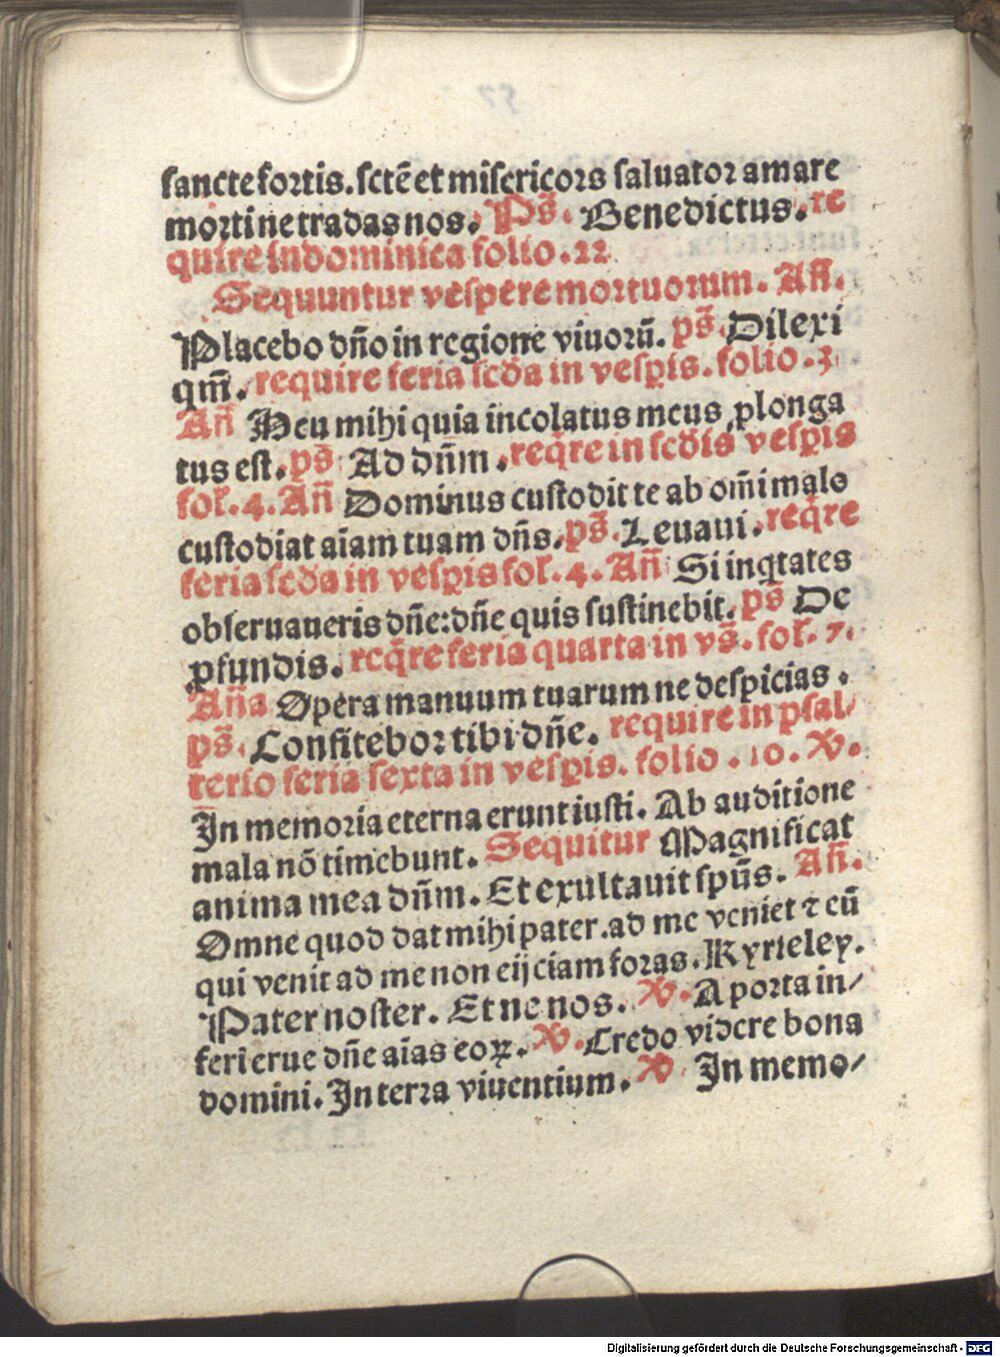 sancte fortis. sctē et misericors saluator amare
morti ne tradas nos. Ps̄. Benedictus. re
quire in dominica folio. 22
Sequuntur vespere mortuorum. An̄.
Placebo dn̄o in regione viuorū. ps̄. Dilexi
qm̄. require feria scda in vesꝑis. folio. 3
An̄ Heu mihi quia incolatus meus ꝓlonga
tus est. ps̄ Ad dn̄m. reqͥre in scdis vesꝑis
fol. 4. An̄ Dominus custodit te ab om̄i malo
custodiat aīam tuam dn̄s. ps̄. Leuaui. reqͥre
feria scda in vesꝑis fol. 4. An̄ Si iniqͥtates
obseruaueris dn̄e: dn̄e quis sustinebit. ps̄ De
ꝓfundis. reqͥre feria quarta in vs̄. fol. 7.
An̄a Opera manuum tuarum ne despicias.
ps̄. Confitebor tibi dn̄e. require in psal/
terio feria sexta in vesꝑis. folio. 10. ℣.
In memoria eterna erunt iusti. Ab auditione
mala nō timebunt. Sequitur Magnificat
anima mea dn̄m. Et exultauit spūs. An̄.
Omne quod dat mihi pater. ad me veniet ⁊ eū
qui venit ad me non eijciam foras. Kyrieley.
Pater noster. Et ne nos. ℣. A porta in/
feri erue dn̄e aīas eoꝝ. ℣. Credo videre bona
domini. In terra viuentium. ℣ In memo/
Digitalisierung gefördert durch die Deutsche Forschungsgemeinschaft - DFG